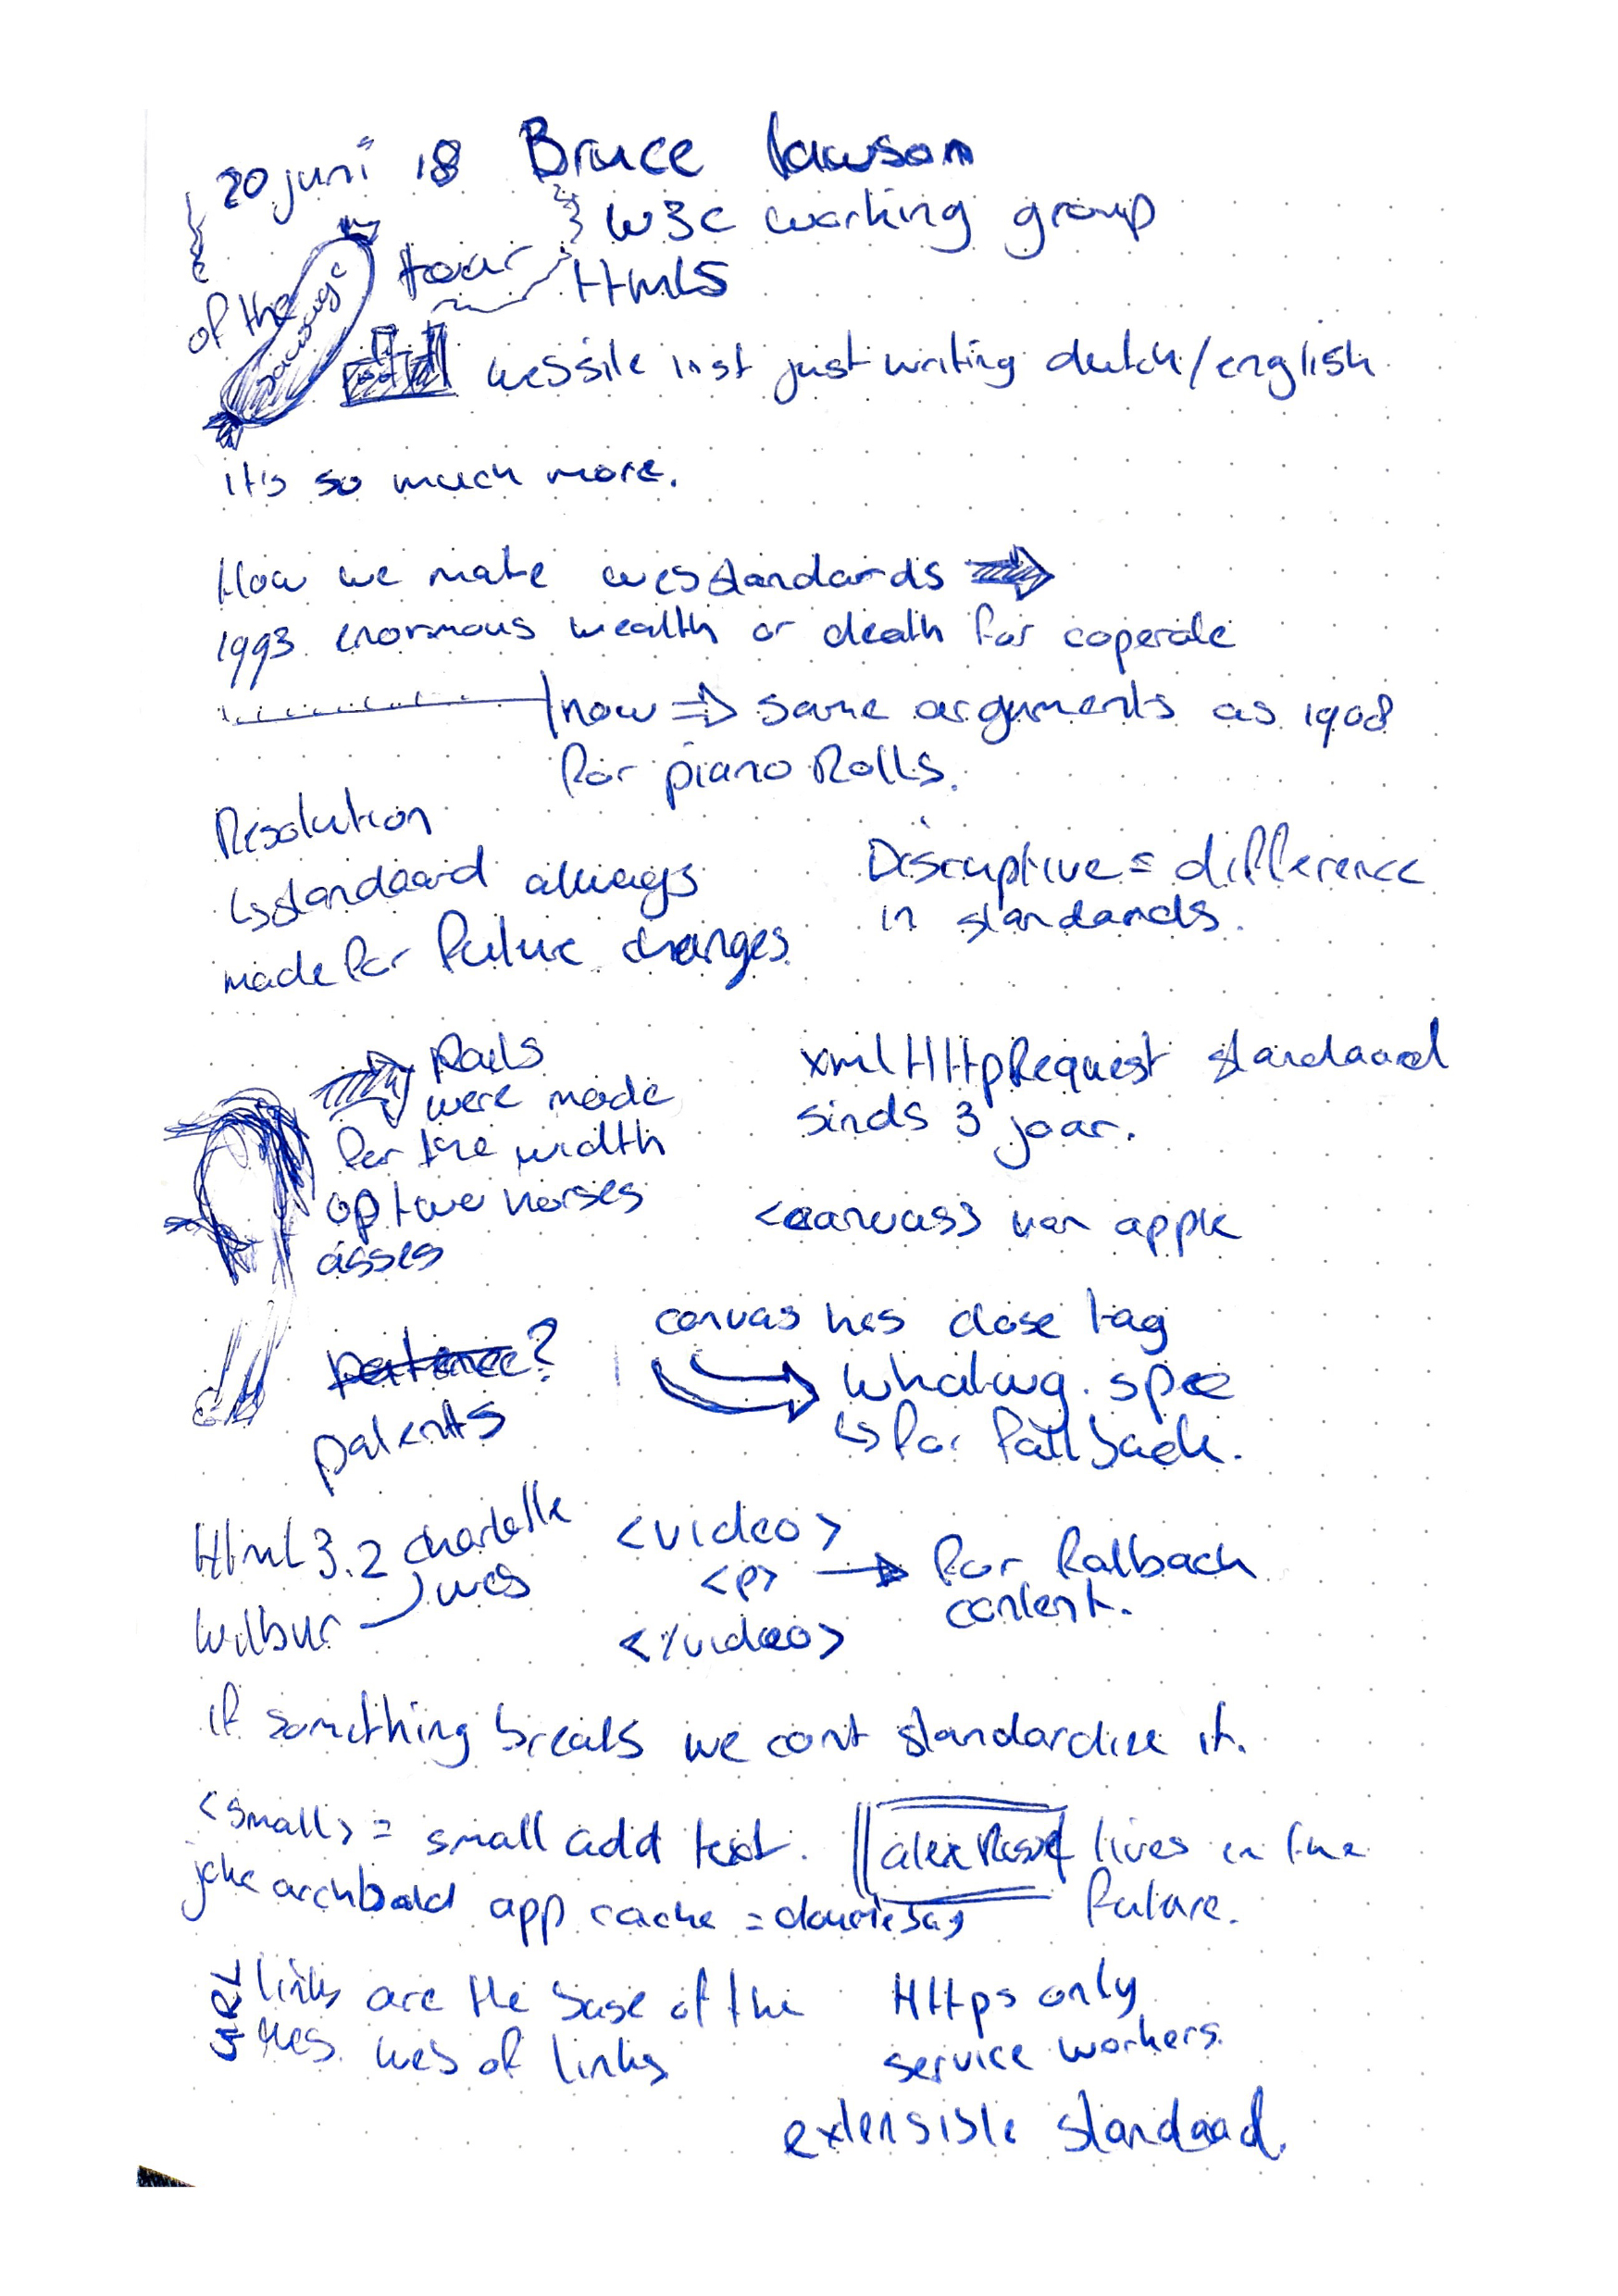 20 juni 18 Bruce Lawson
W3C working group
tour
HTML5
of the sausage
website inst just writing dutch/english
it's so much more.
How we make webstandards
1993 enormous wealth or death for coperate
now ⇒ same arguments as 1908
for piano Rolls.
Resolution
↳ standaard always
made for future changes.
Disruptive = difference
in standards.
Rails
were made
for the width
op two horses
asses
xmlHttpRequest standaard
sinds 3 jaar.
<canvass> van apple
patents
canvas has close tag
whatwg. spec
↳ for fallback.
Html 3.2
Wilbur
web
<video>
<p> → for fallback
content.
</video>
if something breaks we can't standardize it.
<small> = small add text.
alex Russel lives in the
future.
jake archibald app cache = douchebag
URL
links are the base of the
web of links
Https only
service workers.
extensible standaad.